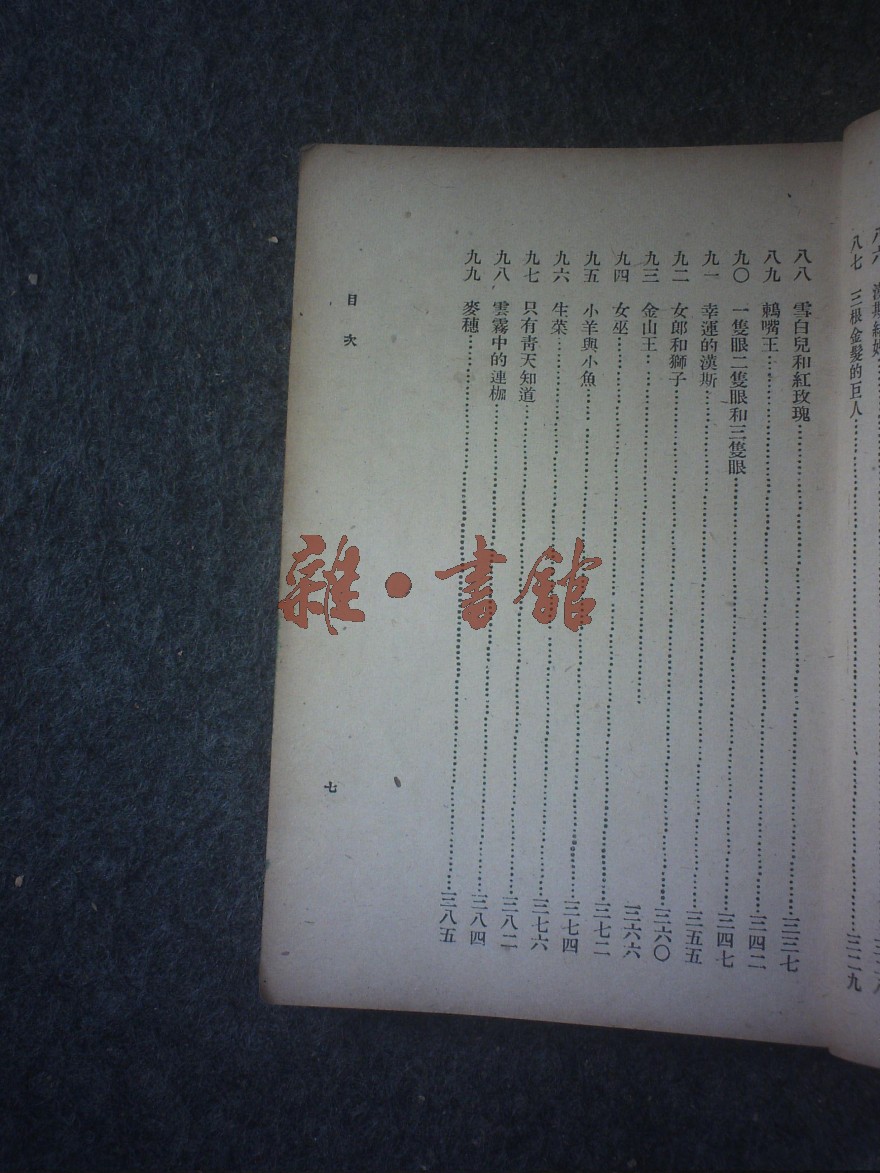 八六
八七　三根金髮的巨人……三二九
八八　雪白兒和紅玫瑰……三三七
八九　鶇嘴王……三四二
九〇　一隻眼二隻眼和三隻眼……三四七
九一　幸運的漢斯……三五五
九二　女郎和獅子……三六〇
九三　金山王……三六六
九四　女巫……三七二
九五　小羊與小魚……三七四
九六　生菜……三七六
九七　只有青天知道……三八二
九八　雲霧中的連枷……三八四
九九　麥穗……三八五
目次
七
雜·書館